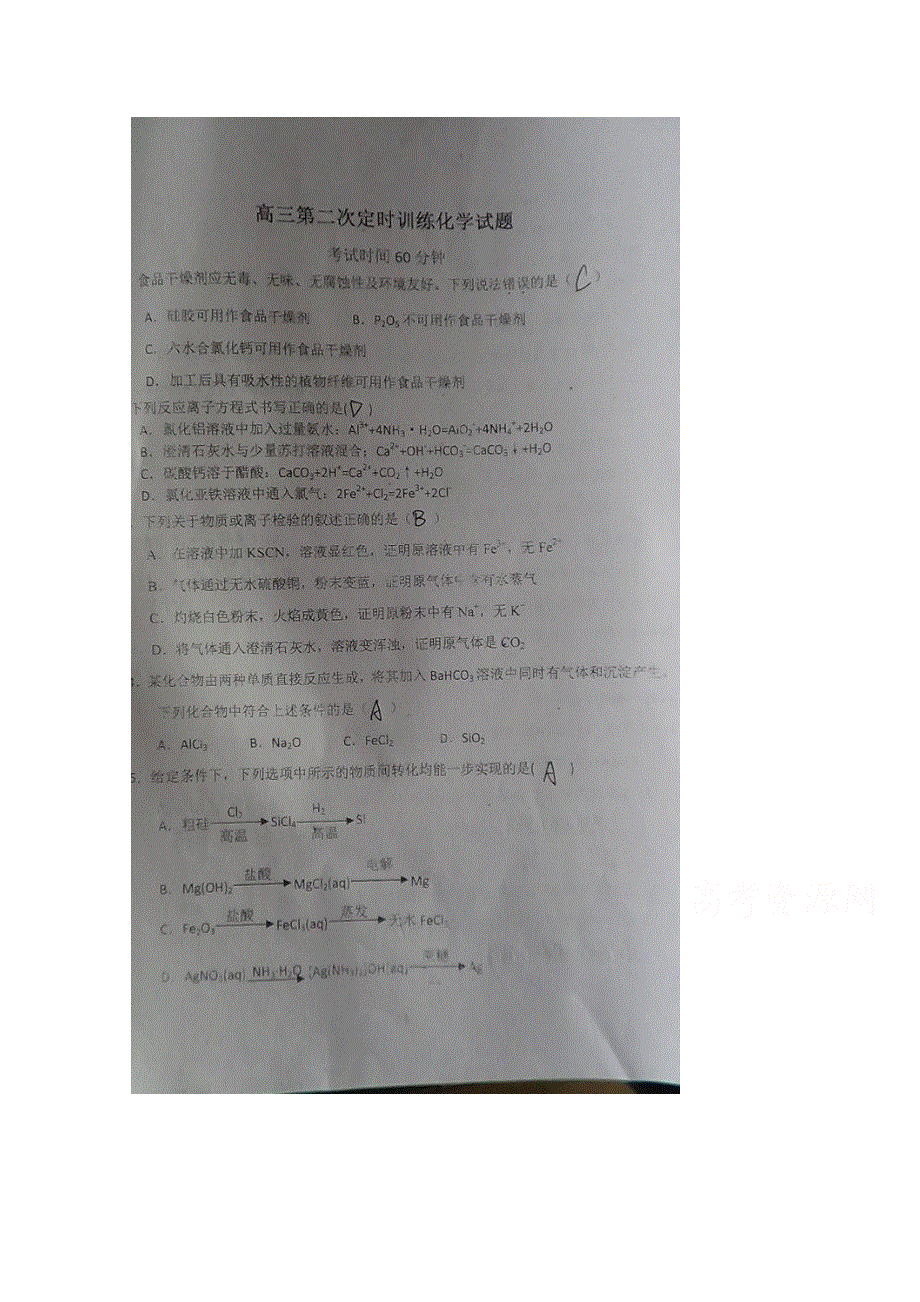 高三第二次定时训练化学试题
考试时间60分钟
食品干燥剂应无毒、无味、无腐蚀性及环境友好。下列说法错误的是（C）
A．硅胶可用作食品干燥剂 B．P₂O₅不可用作食品干燥剂
C．六水合氯化钙可用作食品干燥剂
D．加工后具有吸水性的植物纤维可用作食品干燥剂
下列反应离子方程式书写正确的是(D)
A．氯化铝溶液中加入过量氨水：Al³⁺+4NH₃·H₂O=AlO₂⁻+4NH₄⁺+2H₂O
B．澄清石灰水与少量苏打溶液混合：Ca²⁺+OH⁻+HCO₃⁻=CaCO₃↓+H₂O
C．碳酸钙溶于醋酸：CaCO₃+2H⁺=Ca²⁺+CO₂↑+H₂O
D．氯化亚铁溶液中通入氯气：2Fe²⁺+Cl₂=2Fe³⁺+2Cl⁻
下列关于物质或离子检验的叙述正确的是（B）
A．在溶液中加KSCN，溶液显红色，证明原溶液中有Fe³⁺，无Fe²⁺
B．气体通过无水硫酸铜，粉末变蓝，证明原气体中含有水蒸气
C．灼烧白色粉末，火焰成黄色，证明原粉末中有Na⁺，无K⁺
D．将气体通入澄清石灰水，溶液变浑浊，证明原气体是CO₂
4．某化合物由两种单质直接反应生成，将其加入BaHCO₃溶液中同时有气体和沉淀产生。
下列化合物中符合上述条件的是（A）
A．AlCl₃ B．Na₂O C．FeCl₂ D．SiO₂
5．给定条件下，下列选项中所示的物质间转化均能一步实现的是(A)
A．粗硅 Cl₂ 高温 SiCl₄ H₂ 高温 Si
B．Mg(OH)₂ 盐酸 MgCl₂(aq) 电解 Mg
C．Fe₂O₃ 盐酸 FeCl₃(aq) 蒸发 无水FeCl₃
D AgNO₃(aq) NH₃·H₂O [Ag(NH₃)₂]OH(aq) 蔗糖 Ag
高考资源网